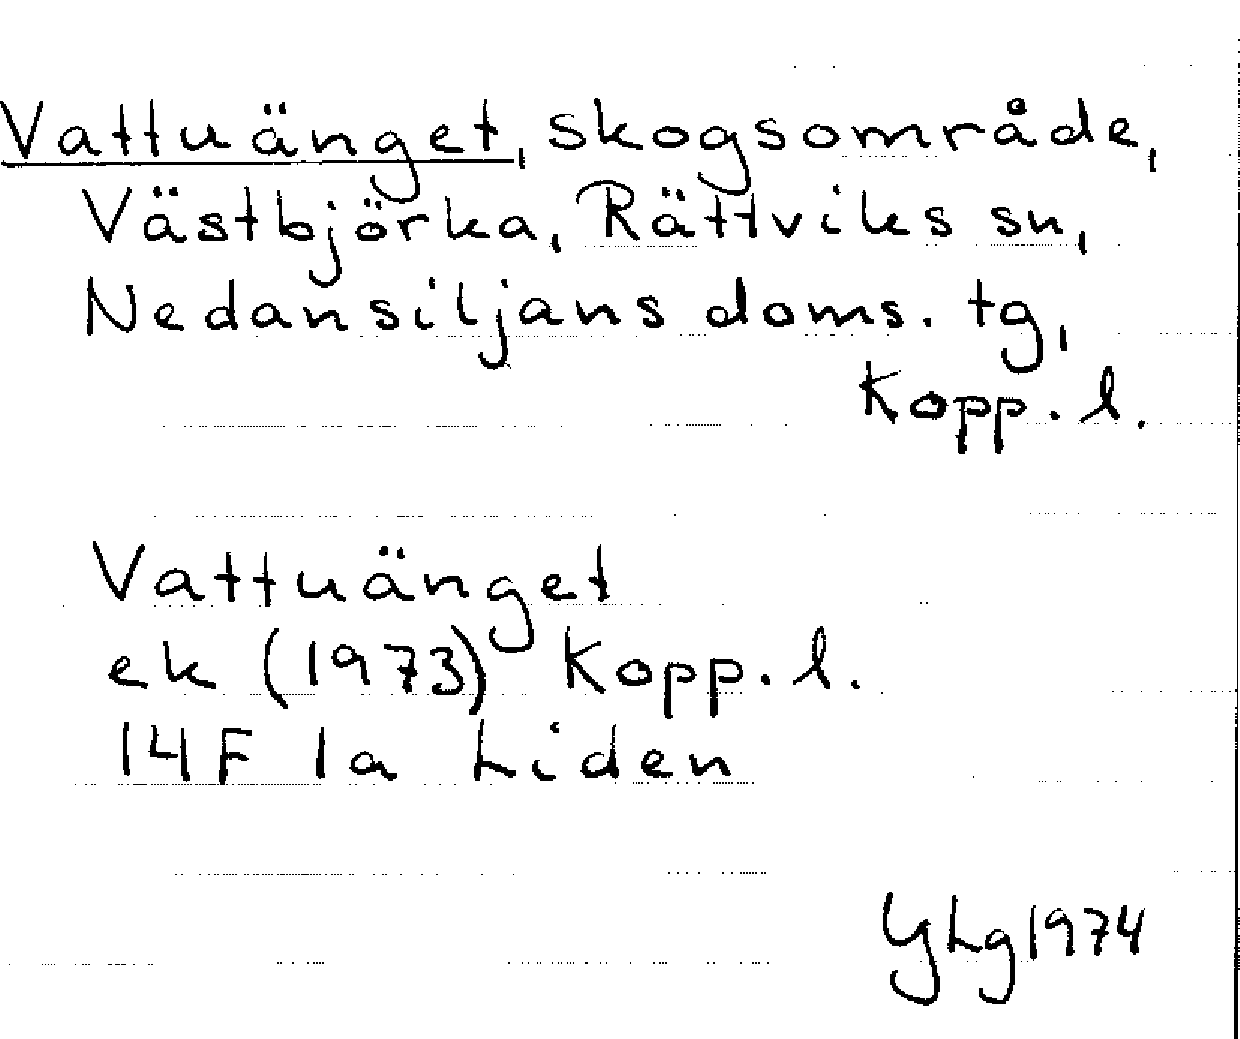 Vattuänget, skogsområde,
Västbjörka, Rättviks sn,
Nedansiljans doms. tg,
Kopp. l.
Vattuänget
ek (1973) Kopp. l.
14F 1a Liden
YLg 1974